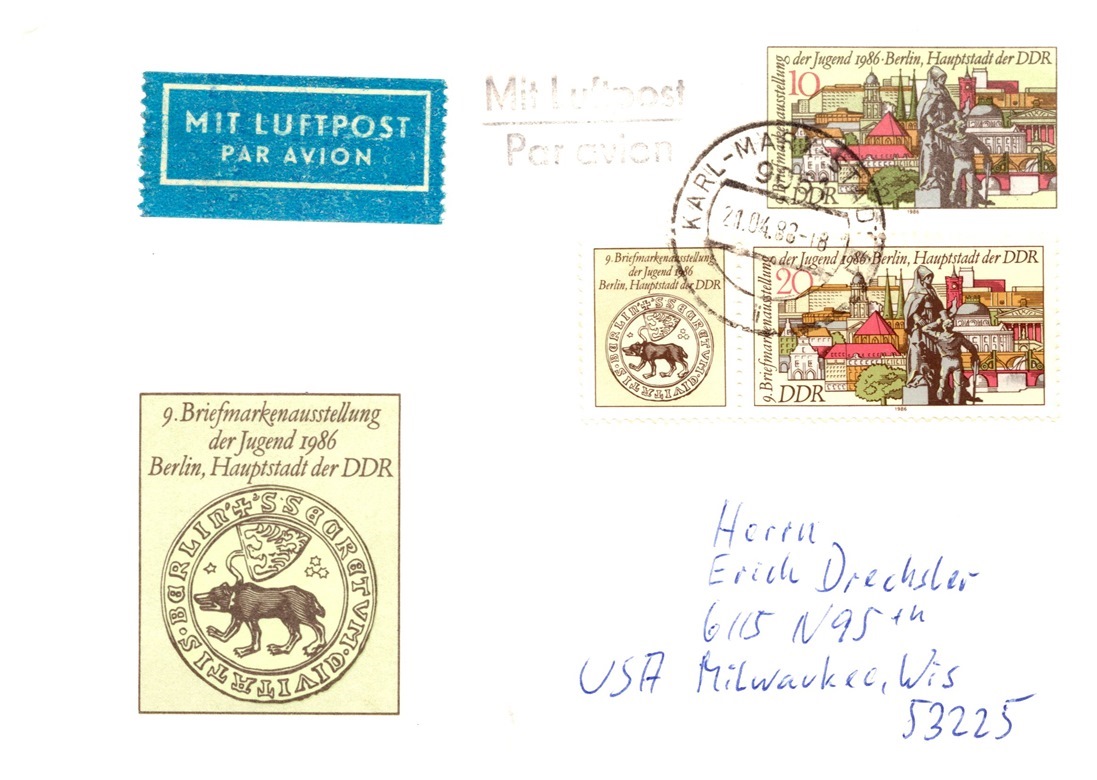 MIT LUFTPOST
PAR AVION
Mit Luftpost
Par avion
9. Briefmarkenausstellung
der Jugend 1986 · Berlin, Hauptstadt der DDR
10
DDR
1986
KARL-MARX-STADT
21.04.88-18
9. Briefmarkenausstellung
der Jugend 1986
Berlin, Hauptstadt der DDR
S·SECRETVM·CIVITATIS·BERLIN
9. Briefmarkenausstellung
der Jugend 1986 · Berlin, Hauptstadt der DDR
20
DDR
1986
9. Briefmarkenausstellung
der Jugend 1986
Berlin, Hauptstadt der DDR
S·SECRETVM·CIVITATIS·BERLIN
Herrn
Erich Drechsler
6115 N95th
USA Milwaukee, Wis
53225